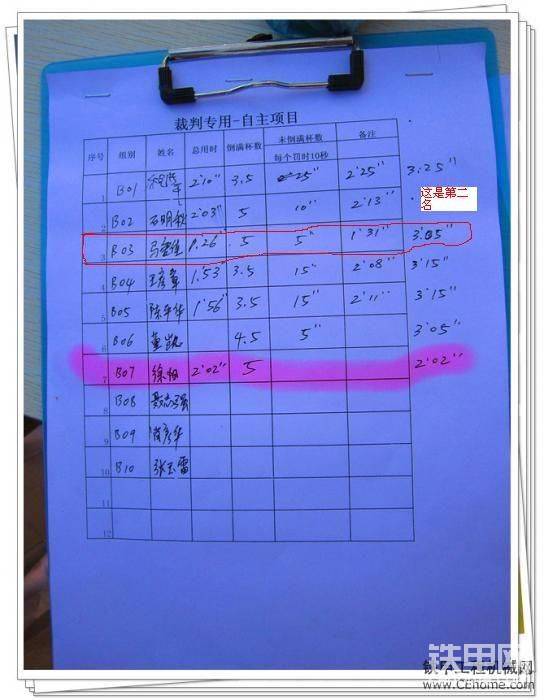 裁判专用-自主项目
序号 组别 姓名 总用时 倒满杯数 未倒满杯数 每个罚时10秒 备注
1 B01 2'10" 3.5 25" 2'25" 3'25"
这是第二名
2 B02 石明钦 2'03" 5 10" 2'13"
3 B03 5 5" 1'31" 3'05"
4 B04 1'53 3.5 15" 2'08" 3'15"
5 B05 陈平华 1'56" 3.5 15" 2'11" 3'15"
6 B06 董凯 4.5 5" 3'05"
7 B07 徐 2'02" 5 2'02"
8 B08 聂志强
9 B09 华
10 B10 张玉雷
11
12
铁甲网
铁甲工程机械网
www.CEhome.com